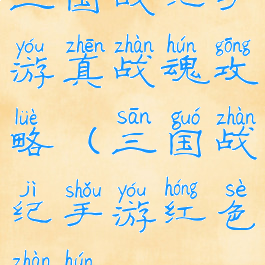 yóu zhēn zhàn hún gōng
游真战魂攻
lüè sān guó zhàn
略（三国战
jì shǒu yóu hóng sè
纪手游红色
zhàn hún